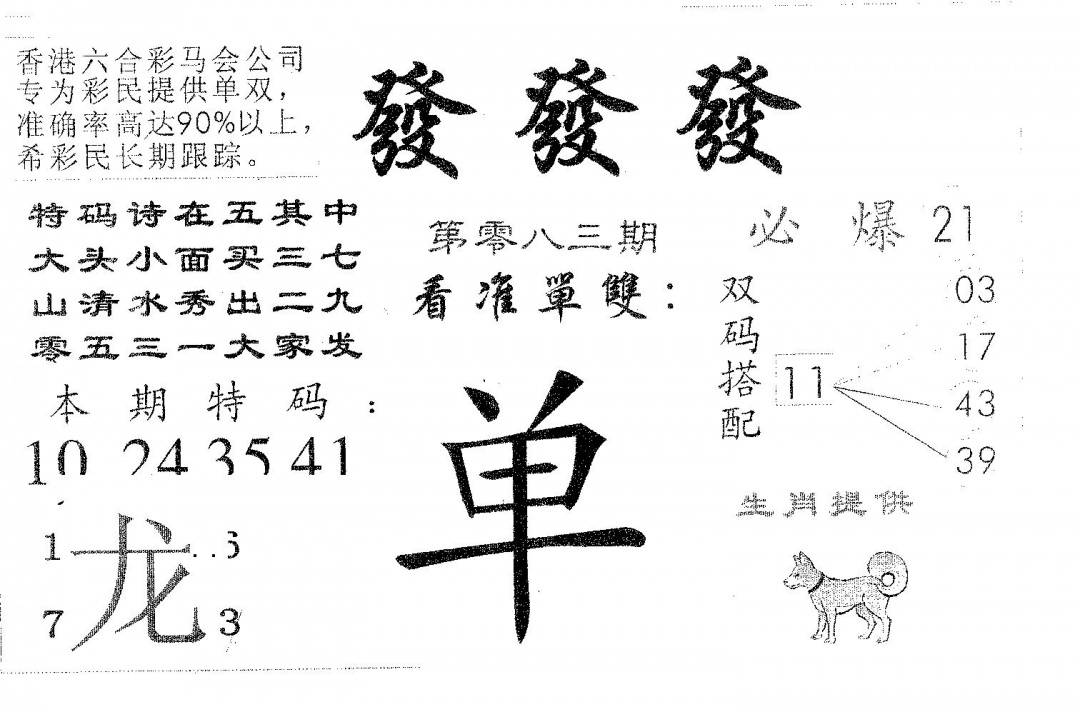 香港六合彩马会公司
专为彩民提供单双，
准确率高达90%以上，
希彩民长期跟踪。
發發發
特码诗在五其中
大头小面买三七
山清水秀出二九
零五三一大家发
第零八三期
看准單雙：
必爆21
双码搭配
11
03
17
43
39
本期特码：
10 24 35 41
单
生肖提供
1
龙
7 3